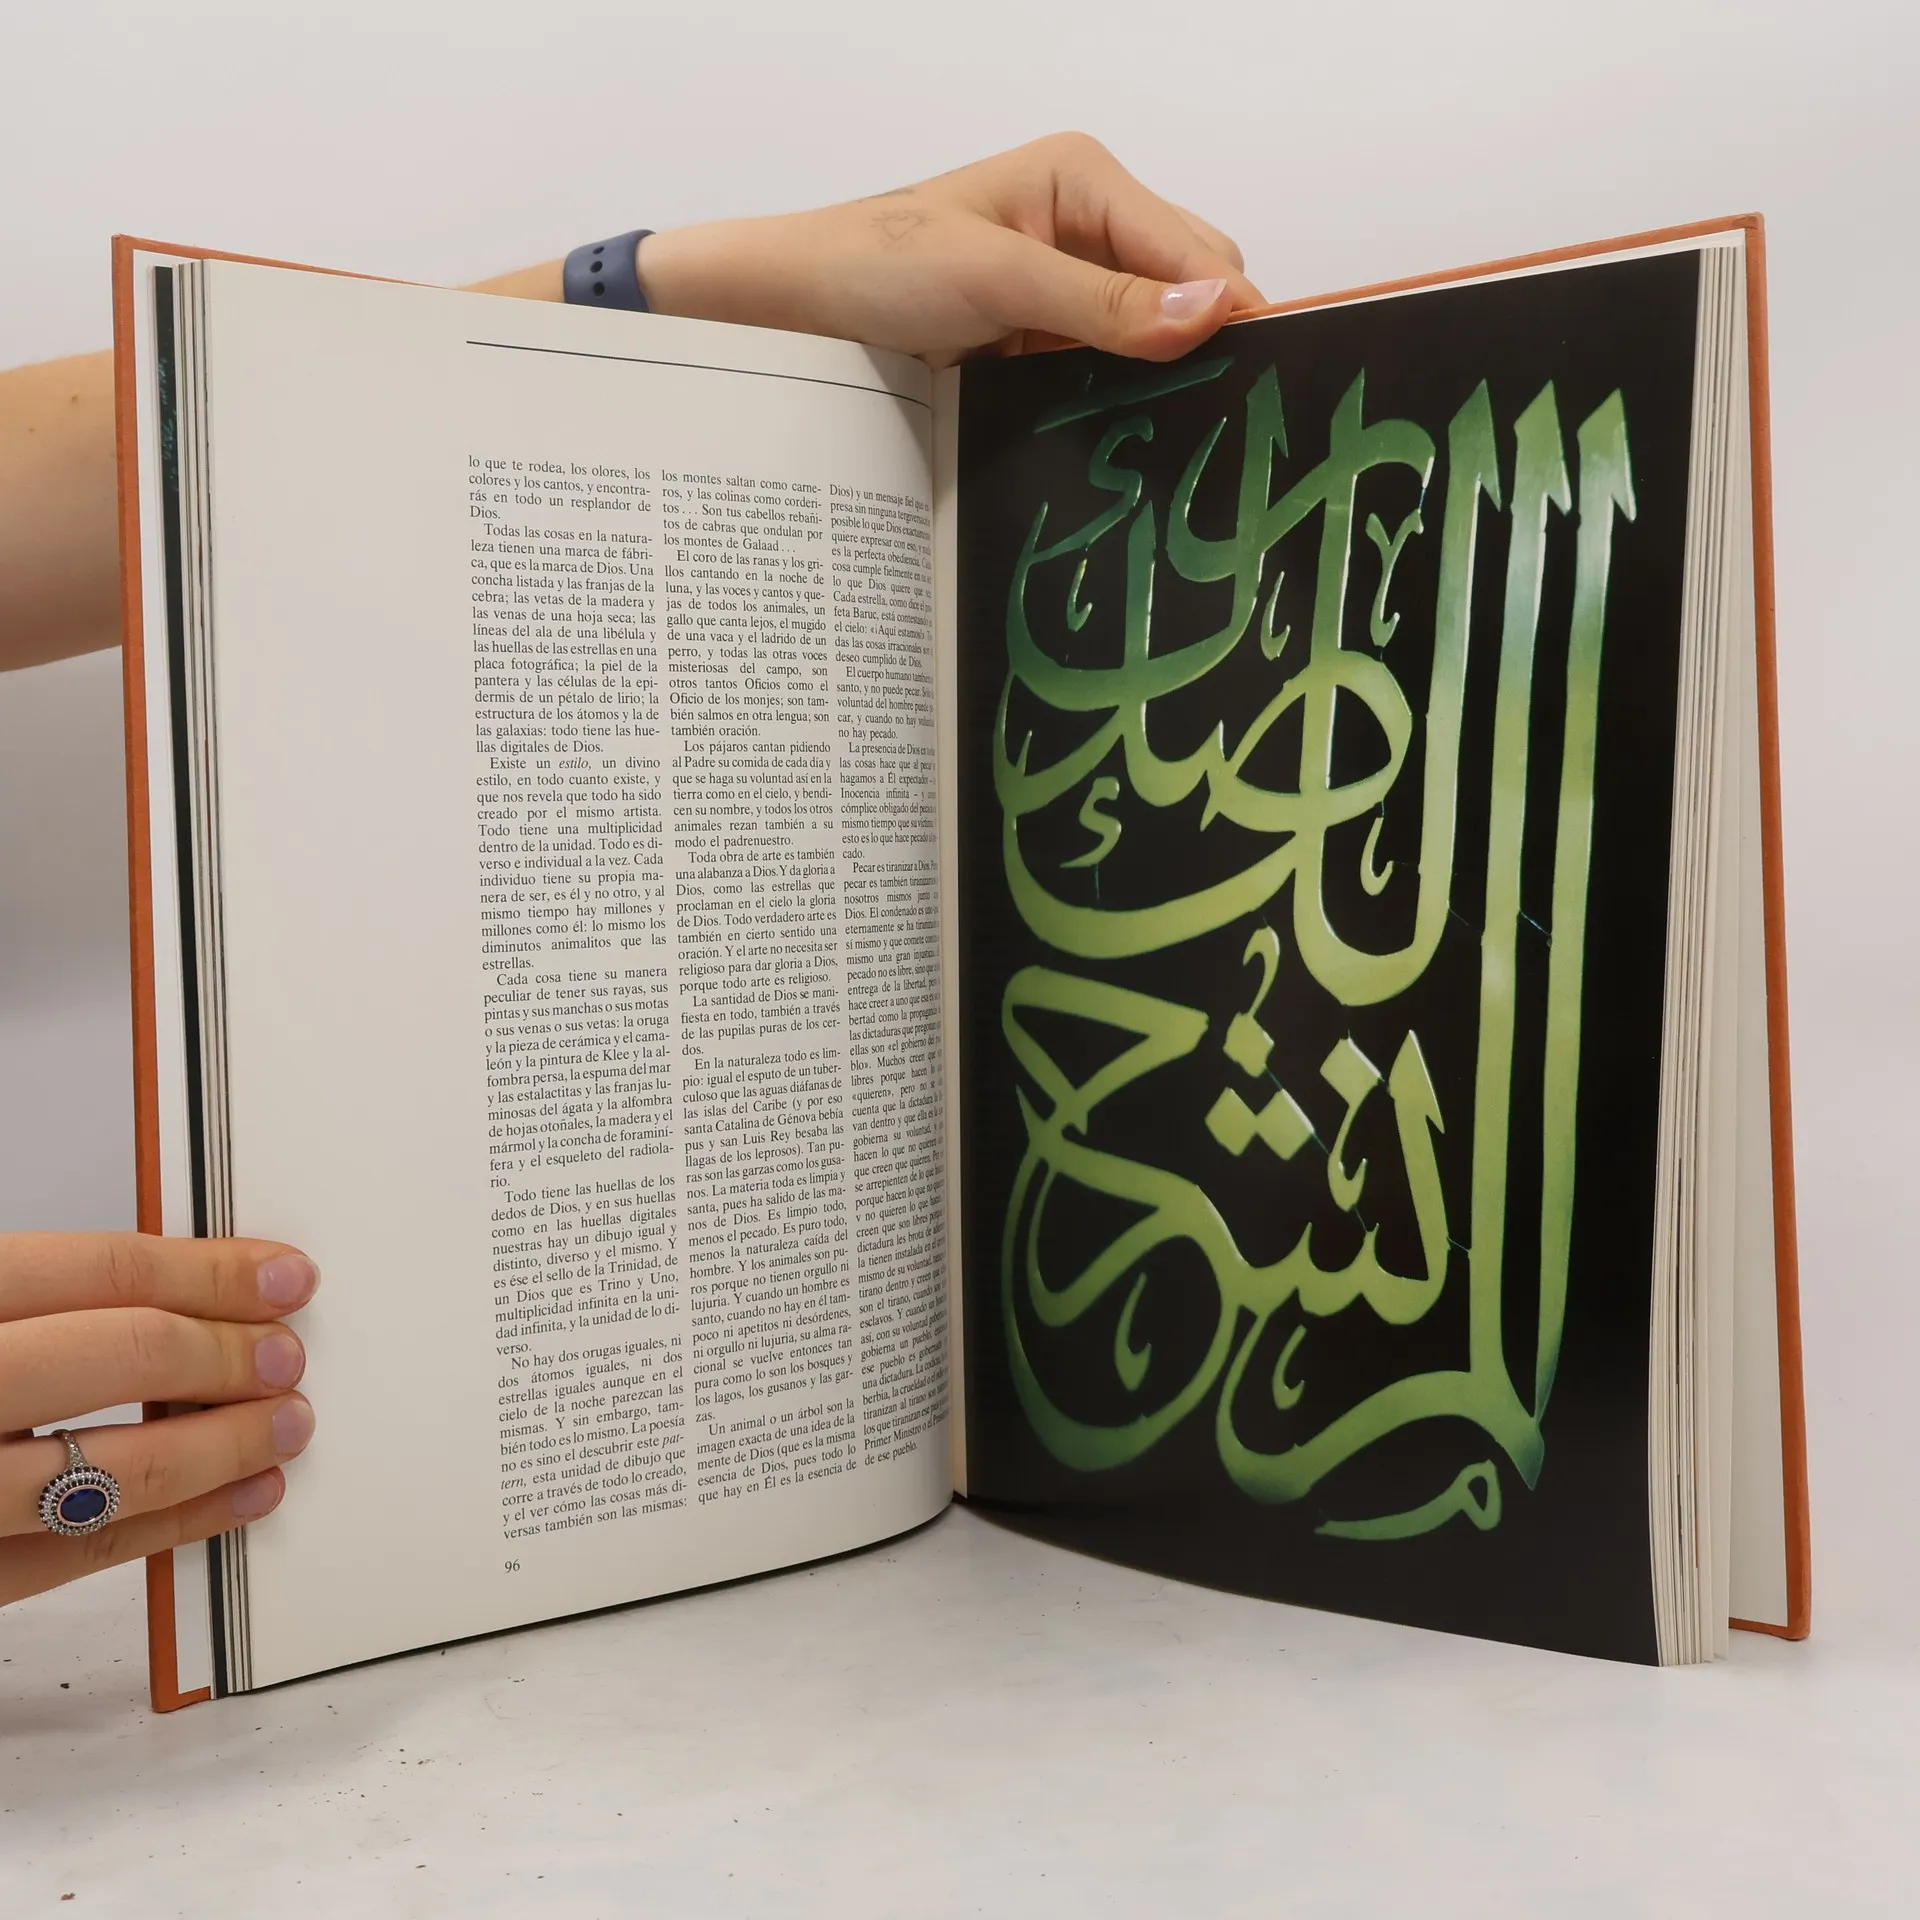 lo que te rodea, los olores, los
colores y los cantos, y encontra-
rás en todo un resplandor de
Dios.
Todas las cosas en la natura-
leza tienen una marca de fábri-
ca, que es la marca de Dios. Una
concha listada y las franjas de la
cebra; las vetas de la madera y
las venas de una hoja seca; las
líneas del ala de una libélula y
las huellas de las estrellas en una
placa fotográfica; la piel de la
pantera y las células de la epi-
dermis de un pétalo de lirio; la
estructura de los átomos y la de
las galaxias: todo tiene las hue-
llas digitales de Dios.
Existe un estilo, un divino
estilo, en todo cuanto existe, y
que nos revela que todo ha sido
creado por el mismo artista.
Todo tiene una multiplicidad
dentro de la unidad. Todo es di-
verso e individual a la vez. Cada
individuo tiene su propia ma-
nera de ser, es él y no otro, y al
mismo tiempo hay millones y
millones como él: lo mismo los
diminutos animalitos que las
estrellas.
Cada cosa tiene su manera
peculiar de tener sus rayas, sus
pintas y sus manchas o sus motas
o sus venas o sus vetas: la oruga
y la pieza de cerámica y el cama-
león y la pintura de Klee y la al-
fombra persa, la espuma del mar
y las estalactitas y las franjas lu-
minosas del ágata y la alfombra
de hojas otoñales, la madera y el
mármol y la concha de foraminí-
fera y el esqueleto del radiola-
rio.
Todo tiene las huellas de los
dedos de Dios, y en sus huellas
como en las huellas digitales
nuestras hay un dibujo igual y
distinto, diverso y el mismo. Y
es ése el sello de la Trinidad, de
un Dios que es Trino y Uno,
multiplicidad infinita en la uni-
dad infinita, y la unidad de lo di-
verso.
No hay dos orugas iguales, ni
dos átomos iguales, ni dos
estrellas iguales aunque en el
cielo de la noche parezcan las
mismas. Y sin embargo, tam-
bién todo es lo mismo. La poesía
no es sino el descubrir este pat-
tern, esta unidad de dibujo que
corre a través de todo lo creado,
y el ver cómo las cosas más di-
versas también son las mismas:
los montes saltan como carne-
ros, y las colinas como corderi-
tos... Son tus cabellos rebañi-
tos de cabras que ondulan por
los montes de Galaad...
El coro de las ranas y los gri-
llos cantando en la noche de
luna, y las voces y cantos y que-
jas de todos los animales, un
gallo que canta lejos, el mugido
de una vaca y el ladrido de un
perro, y todas las otras voces
misteriosas del campo, son
otros tantos Oficios como el
Oficio de los monjes; son tam-
bién salmos en otra lengua; son
también oración.
Los pájaros cantan pidiendo
al Padre su comida de cada día y
que se haga su voluntad así en la
tierra como en el cielo, y bendi-
cen su nombre, y todos los otros
animales rezan también a su
modo el padrenuestro.
Toda obra de arte es también
una alabanza a Dios. Y da gloria a
Dios, como las estrellas que
proclaman en el cielo la gloria
de Dios. Todo verdadero arte es
también en cierto sentido una
oración. Y el arte no necesita ser
religioso para dar gloria a Dios,
porque todo arte es religioso.
La santidad de Dios se mani-
fiesta en todo, también a través
de las pupilas puras de los cer-
dos.
En la naturaleza todo es lim-
pio: igual el esputo de un tuber-
culoso que las aguas diáfanas de
las islas del Caribe (y por eso
santa Catalina de Génova bebía
pus y san Luis Rey besaba las
llagas de los leprosos). Tan pu-
ras son las garzas como los gusa-
nos. La materia toda es limpia y
santa, pues ha salido de las ma-
nos de Dios. Es limpio todo,
menos el pecado. Es puro todo,
menos la naturaleza caída del
hombre. Y los animales son pu-
ros porque no tienen orgullo ni
lujuria. Y cuando un hombre es
santo, cuando no hay en él tam-
poco ni apetitos ni desórdenes,
ni orgullo ni lujuria, su alma ra-
cional se vuelve entonces tan
pura como lo son los bosques y
los lagos, los gusanos y las gar-
zas.
Un animal o un árbol son la
imagen exacta de una idea de la
mente de Dios (que es la misma
esencia de Dios, pues todo lo
que hay en Él es la esencia de
Dios) y un mensaje fiel que
presa sin ninguna
posible lo que Dios exactamente
quiere expresar con eso, y
es la perfecta obediencia. Cada
cosa cumple fielmente en su
lo que Dios quiere que
Cada estrella, como dice el
feta Baruc, está contestando
el cielo: «¡Aquí estamos!»
das las cosas irracionales son
deseo cumplido de Dios.
El cuerpo humano también
santo, y no puede pecar. Sólo
voluntad del hombre puede
car, y cuando no hay voluntad
no hay pecado.
La presencia de Dios en
las cosas hace que al pecar
hagamos a Él expectador –
Inocencia infinita – y
cómplice obligado del pecado
mismo tiempo que su víctima.
esto es lo que hace pecado al pe-
cado.
Pecar es tiranizar a Dios.
pecar es también tiranizarnos
nosotros mismos junto
Dios. El condenado es
eternamente se ha tiranizado
sí mismo y que comete
mismo una gran injusticia.
pecado no es libre, sino que
entrega de la libertad, pero
hace creer a uno que esa es
bertad como la propaganda
las dictaduras que pregonan
ellas son «el gobierno del
blo». Muchos creen que
libres porque hacen lo
«quieren», pero no se
cuenta que la dictadura la
van dentro y que ella es la
gobierna su voluntad, y
hacen lo que no quieren
que creen que quieren.
se arrepienten de lo que
porque hacen lo que no
y no quieren lo que hacen.
creen que son libres porque
dictadura les brota de
la tienen instalada en el
mismo de su voluntad,
tirano dentro y creen que
son el tirano, cuando son
esclavos. Y cuando un
así, con su voluntad
gobierna un pueblo,
ese pueblo es gobernado
una dictadura. La codicia,
berbia, la crueldad o el
tiranizan al tirano
los que tiranizan ese
Primer Ministro o el
de ese pueblo.
96
ألم نشرح لك صدرك